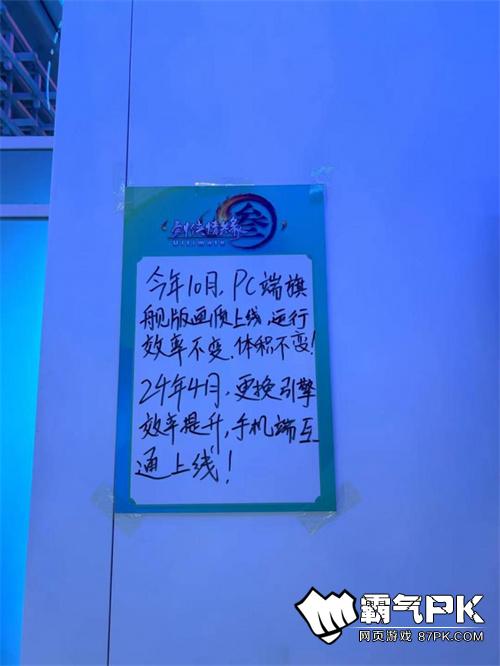 剑侠情缘
叁
Ultimate
今年10月,PC端旗
舰版画质上线,运行
效率不变,体积不变!
24年4月,更换引擎
效率提升,手机端互
通上线!
霸气PK
网页游戏 87PK.COM